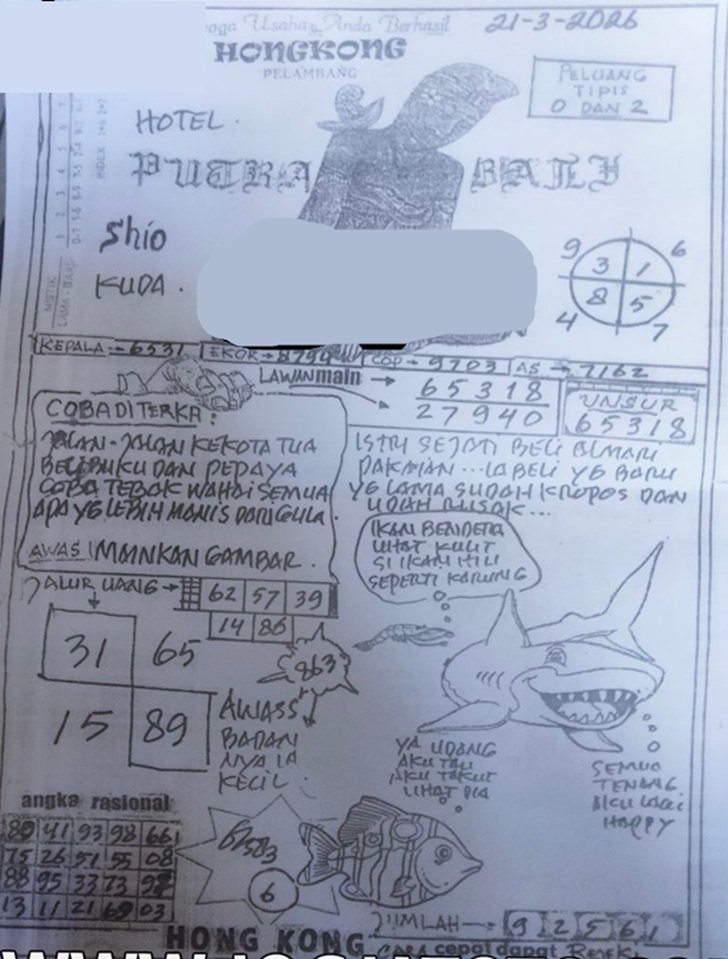 Usaha Anda Berhasil
21-3-2026
HONGKONG
PELAMBANG
PELUANG
TIPIS
0 DAN 2
HOTEL
PUTRA BALI
Shio
KUDA.
9 6
3 1
8 5
4 7
KEPALA = 6531
EKOR → 8794
COP → 9703
AS → 7162
LAWAN main →
65318
27940
UNSUR
65318
COBA DITERKA:
JALAN-JALAN KEKOTA TUA
BELI BUKU DAN PEPAYA
COBA TEBAK WAHAI SEMUA
APA YG LEBIH MANIS DARI GULA.
AWAS! MAINKAN GAMBAR.
ISTRI SEJATI BELI ALMARI
PAKAIAN...IA BELI YG BARU
YG LAMA SUDAH KROPOS DAN
UDAH RUSAK...
IKAN BENDERA
LIHAT KULIT
SI IKAN HIU
SEPERTI KARUNG
JALUR UANG →
62 57 39
14 86
31 65
15 89
863
AWASS
BADAN
NYA IA
KECIL.
YA UDANG
AKU TAU
AKU TAKUT
LIHAT DIA
SEMUA
TENANG
AKU LAGI
HAPPY
angka rasional
80 41 93 98 66
75 26 51 55 08
88 95 33 73 92
13 11 21 69 03
6
JUMLAH → 9 2 5 6 1
HONG KONG
cepat dapat